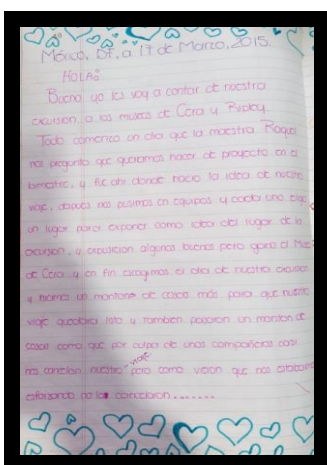 México, DF, a 17 de Marzo, 2015.
HOLA:
Bueno yo les voy a contar de nuestra
excursion a los museos de Cera y Ripley.
Todo comenzo un dia que la maestra Raquel
nos pregunto que queriamos hacer de proyecto en el
bimestre, y fue ahi donde nacio la idea de nuestro
viaje, después nos pusimos en equipos y cada uno eligio
un lugar para exponer como idea del lugar de la
excursion, y expusieron algunos buenos pero gano el Museo
de Cera y en fin escogimos el dia de nuestra excursion
y hicimos un monton de cosas más para que nuestro
viaje quedara listo y tambien pasaron un monton de
cosas como que por culpa de unas compañeras casi
nos cancelan nuestro viaje pero como vieron que nos estabamos
esforzando no lo cancelaron.......